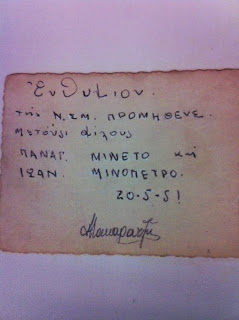 Ἐνθύμιον.
της Ν.ΣΜ. ΠΡΟΜΗΘΕΥΣ.
φίλους
ΠΑΝΑΓ. ΜΙΝΕΤΟ και
ΙΩΑΝ. ΜΙΝΟΠΕΤΡΟ.
20-5-51